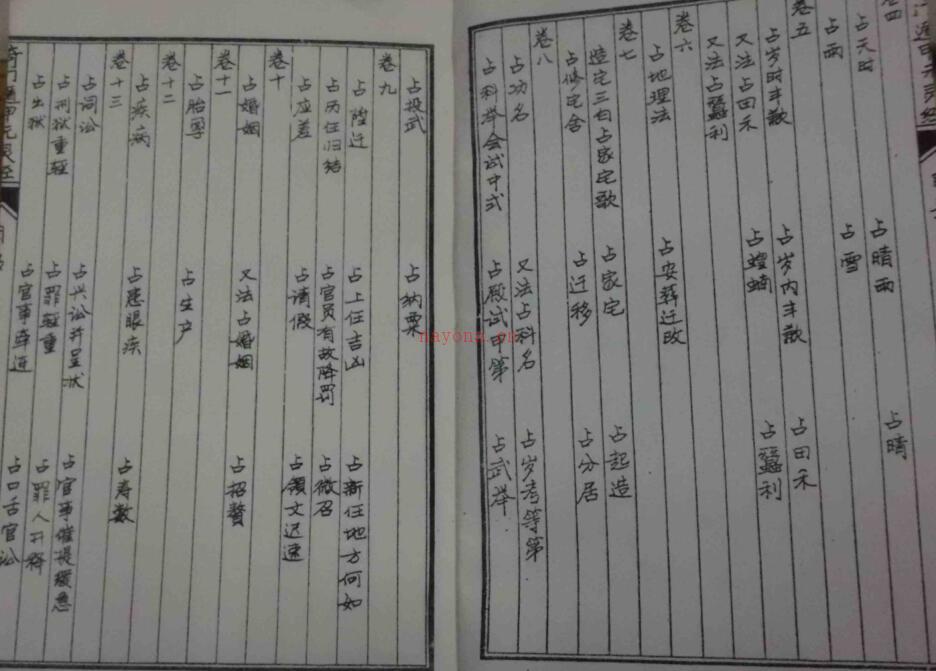 遁甲元灵经
卷四
占天时 占晴雨 占晴
占雨 占雪
卷五
占岁时丰歉 占岁内丰歉 占田禾
又法占田禾 占螳蝻 占蚕利
又法占蚕利
卷六
占地理法 占安葬迁改
卷七
造宅三白占家宅歌 占家宅 占起造
占修宅舍 占迁移 占分居
卷八
占功名 又法占科名 占岁考等第
占科举会试中式 占殿试甲第 占武举
占投武 占纳粟
卷九
占陞迁 占上任吉凶 占新任地方何如
占历任归结 占官员有故降罚 占徵召
占应差 占请假 占领文迟速
卷十
占婚姻 又法占婚姻 占招赘
卷十一
占胎孕 占生产
卷十二
占疾病 占患眼疾 占寿数
卷十三
占词讼 占兴讼并呈状 占官事催提缓急
占刑狱重轻 占罪轻重 占罪人开释
占出狱 占官事牵连 占口舌官讼
奇门遁甲元灵经
nayona.cn